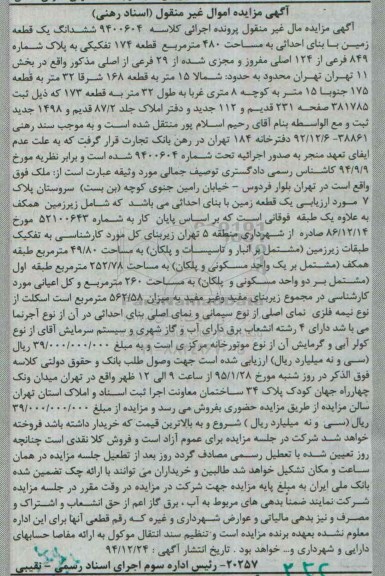 آگهی مزایده اموال غیر منقول (اسناد رهنی)
آگهی مزایده مال غیر منقول پرونده اجرائی کلاسه ۹۴۰۰۶۰۴ ششدانگ یک قطعه
زمین با بنای احداثی به مساحت ۴۸۰ مترمربع قطعه ۱۷۴ تفکیکی به پلاک شماره
۸۴۹ فرعی از ۱۲۴ اصلی مفروز و مجزی شده از ۲۹ فرعی از اصلی مذکور واقع در بخش
۱۱ تهران تهران محدود به حدود: شمالا ۱۵ متر به قطعه ۱۶۸ شرقا ۳۲ متر به قطعه
۱۷۵ جنوبا ۱۵ متر به کوچه ۸ متری غربا به طول ۳۲ متر به قطعه ۱۷۳ که ذیل ثبت
۳۸۱۷۸۵ صفحه ۲۳۱ قدیم و ۱۱۲ جدید و دفتر املاک جلد ۸۷/۲ قدیم و ۱۴۹۸ جدید
ثبت و مع الواسطه بنام آقای رحیم اسلام پور منتقل شده است و به موجب سند رهنی
۳۸۸۶۱- ۹۲/۱۲/۶ دفترخانه ۱۸۴ تهران در رهن بانک تجارت قرار گرفت که به علت عدم
ایفای تعهد منجر به صدور اجرائیه تحت شماره ۹۴۰۰۶۰۴ شده است و برابر نظریه مورخ
۹۴/۹/۹ کاشناس رسمی دادگستری توصیف جمالی مورد وثیقه عبارت است از: ملک فوق
واقع است در تهران بلوار فردوس - خیابان رامین جنوی کوچه (بن بست) سروستان پلاک
۷ مورد ارزیابی یک قطعه زمین با بنای احداثی می باشد که شامل زیرزمین همکف
به علاوه یک طبقه فوقانی است که بر اساس پایان کار به شماره ۵۲۱۰۰۶۴۳ مورخ
۸۶/۱۲/۱۴ صادره از شهرداری منطقه ۵ تهران زیربنای کل مورد کارشناسی به تفکیک
طبقات زیرزمین (مشتمل بر انبار و تاسیسات و پلکان) به مساحت ۴۹/۸۰ مترمربع طبقه
همکف (مشتمل بر یک واحد مسکونی و پلکان) به مساحت ۲۵۲/۷۸ مترمربع طبقه اول
(مشتمل بر دو واحد مسکونی و پلکان) به مساحت ۲۶۰ مترمربع و کل اعیانی مورد
کارشناسی در مجموع زیربنای مفید وغیر مفید به میزان ۵۶۲/۵۸ مترمربع است اسکلت از
نوع نیمه فلزی نمای اصلی از نوع سیمانی و نمای اصلی بنای احداثی در آن از نوع آجرنما
می با شد دارای ۴ رشته انشعاب برق دارای آب و گاز شهری و سیستم سرمایش آقای از نوع
کولر آبی و گرمایش آن از نوع موتورخانه مرکزی است و به مبلغ ۳۹/۰۰۰/۰۰۰/۰۰۰ ریال
(سی و نه میلیارد ریال) ارزیابی شده است جهت وصول طلب بانک و حقوق دولتی کلاسه
فوق الذکر در روز شنبه مورخ ۹۵/۱/۲۸ از ساعت ۹ الی ۱۲ ظهر واقع در تهران میدان ونک
چهارراه جهان کودک پلاک ۳۴ ساختمان معاونت اجرا ثبت اسناد و املاک استان تهران
سالن مزایده از طریق مزایده حضوری بفروش می رسد و مزایده از مبلغ ۳۹/۰۰۰/۰۰۰/۰۰۰
ریال (سی و نه میلیارد ریال) شروع و به بالاترین قیمت که خریدار داشته باشد فروخته
خواهد شد شرکت در جلسه مزایده برای عموم آزاد است و فروش کلا نقدی است چنانچه
روز تعیین شده با تعطیل رسمی مصادف گردد روز بعد از تعطیل جلسه مزایده در همان
ساعت و مکان تشکیل خواهد شد طالبین و خریداران می توانند با ارائه چک تضمین شده
بانک ملی ایران به مبلغ پایه مزایده جهت شرکت در مزایده در وقت مقرر در جلسه مزایده
شرکت نمایند ضمنا بدهی های مربوط به آب ، برق گاز اعم از حق انشعاب و اشتراک و
مصرف و نیز بدهی مالیاتی و عوارض شهرداری و غیره کـه رقم قطعی آنها برای این اداره
معلوم نشده بعهده برنده مزایده است و تنظیم سند انتقال موکول به ارائه مفاصا حسابهای
دارایی و شهرداری و... خواهد بود . تاریخ انتشار آگهی : ۹۴/۱۲/۲۴
۲۰۲۵۷- رئیس اداره سوم اجرای اسناد رسمی - نقیبی